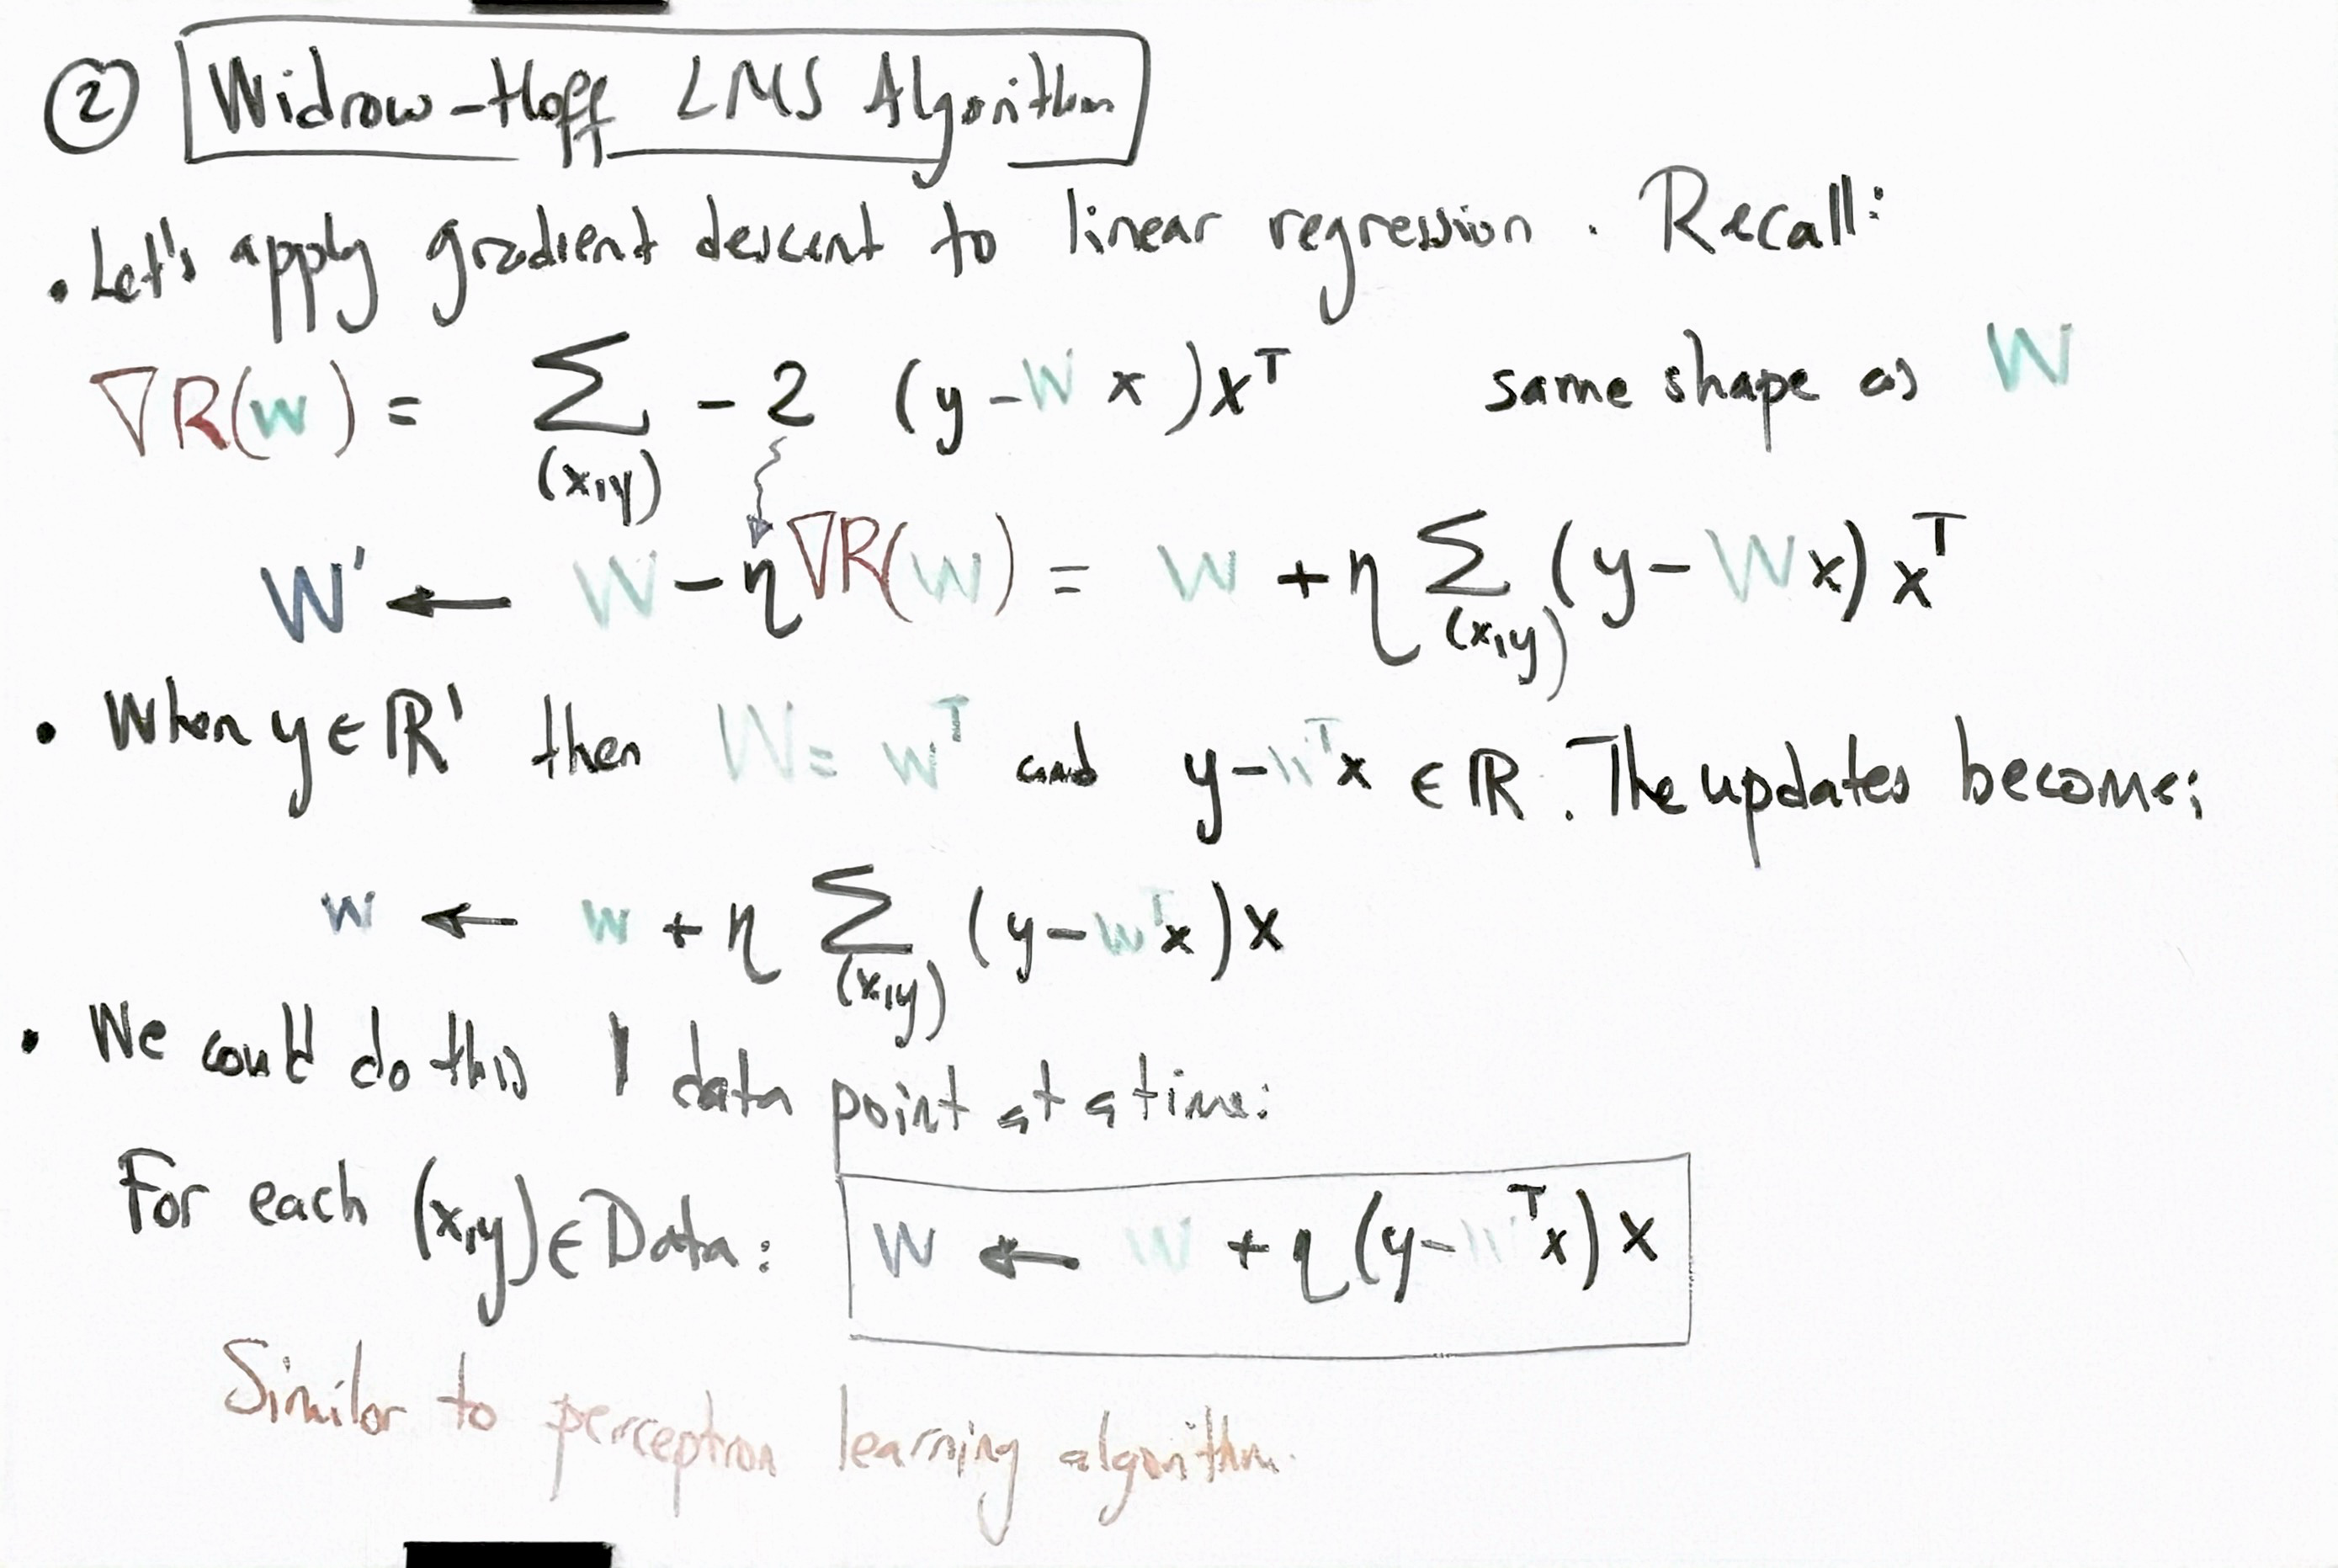 ② Widrow-Hoff LMS Algorithm
• Let's apply gradient descent to linear regression. Recall:
∇R(W) = ∑ -2 (y - W x)xᵀ same shape as W
(x,y)
W' ← W - η∇R(W) = W + η ∑ (y - Wx) xᵀ
(x,y)
• When y ∈ ℝ¹ then W = wᵀ and y - wᵀx ∈ ℝ. The updates become:
w ← w + η ∑ (y - wᵀx)x
(x,y)
• We could do this 1 data point at a time:
For each (x,y) ∈ Data: w ← w + η(y - wᵀx)x
Similar to perceptron learning algorithm.